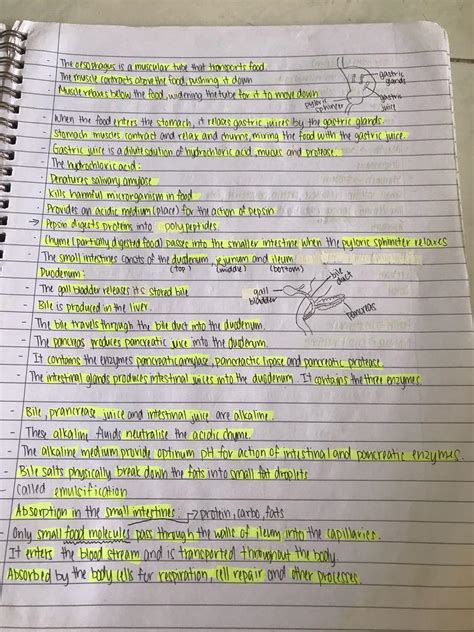 - The oesophagus is a muscular tube that transports food
- The muscle contracts above the food, pushing it down
Muscle relaxes below the food, widening the tube for it to move down
gastric glands
gastric juice
pyloric sphincter
When the food enters the stomach, it relases gastric juices by the gastric glands.
Stomach muscles contract and relax and churns, mixing the food with the gastric juice.
Gastric juice is a dilute solution of hydrochloric acid, mucus and protease.
- The hydrochloric acid:
- Denatures salivary amylase.
- Kills harmful microrganism in food
- Provides an acidic medium (place) for the action of pepsin
→ Pepsin digests proteins into polypeptides.
Chyme (partially digested food) passes into the smaller intestine when the pyloric sphincter relaxes
- The small intestines consits of the duodenum, jejunum and ileum
(top) (middle) (bottom)
Duodenum:
- The gall bladder releases its stored bile
- Bile is produced in the liver.
gall bladder
bile duct
pancreas
- The bile travels through the bile duct into the duodenum.
- The pancreas produces pancreatic juice into the duodenum.
- It contains the enzymes pancreatic amylase, pancreactic lipase and pancreatic protease
- The intestinal glands produces intestinal juices into the duodenum. It contains the three enzymes.
- Bile, prancrease juice and intestinal juice are alkaline.
- These alkaline fluids neutralise the acidic chyme.
- The alkaline medium provide optimum pH for action of intestinal and pancreatic enzymes.
- Bile salts physically break down the fats into small fat droplets
Called emulsification
Absorption in the small intestines: → protein, carbo, fats
- Only small food molecules pass through the walls of ileum into the capillaries.
It enters the blood stream and is transported throughout the body.
Absorbed by the body cells for respiration, cell repair and other processes.